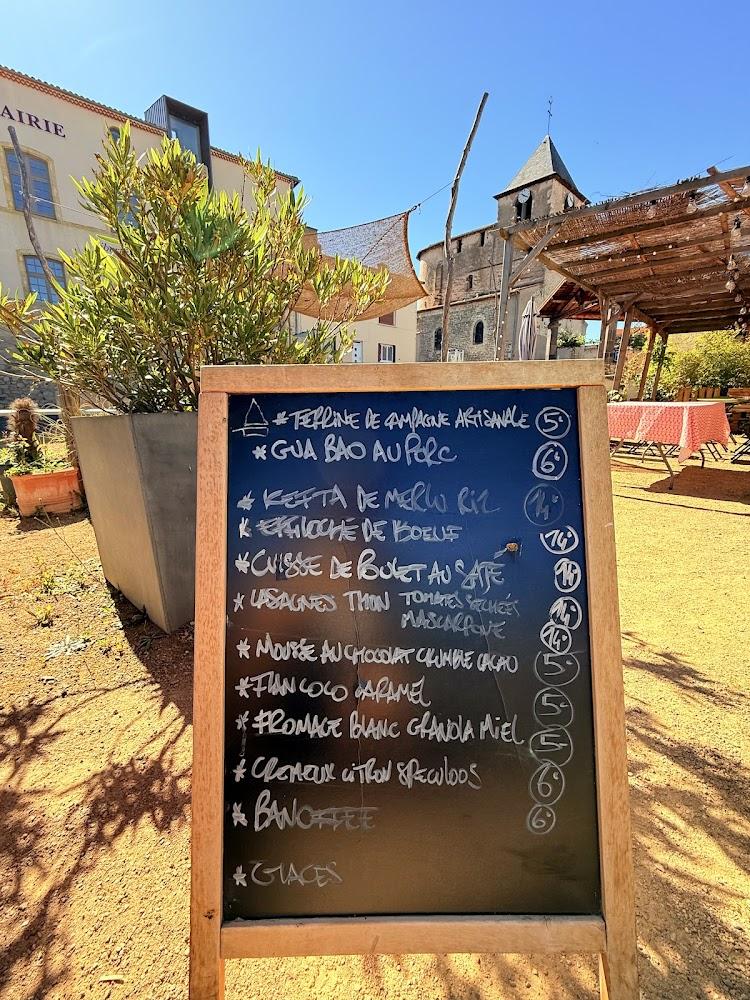 AIRIE
* TERRINE DE CAMPAGNE ARTISANALE 5€
* GUA BAO AU PORC 6€
* KEFTA DE MERLU RIZ 14€
* EFFILOCHÉ DE BOEUF 14€
* CUISSE DE POULET AU SATE 14€
* LASAGNES THON TOMATES SECHÉES 14€
MASCARPONE 14€
* MOUSSE AU CHOCOLAT CRUMBLE CACAO 5€
* FLAN COCO CARAMEL 5€
* FROMAGE BLANC GRANOLA MIEL 5€
* CREMEUX CITRON SPECULOOS 6€
* BANOFFEE 6€
* GLACES